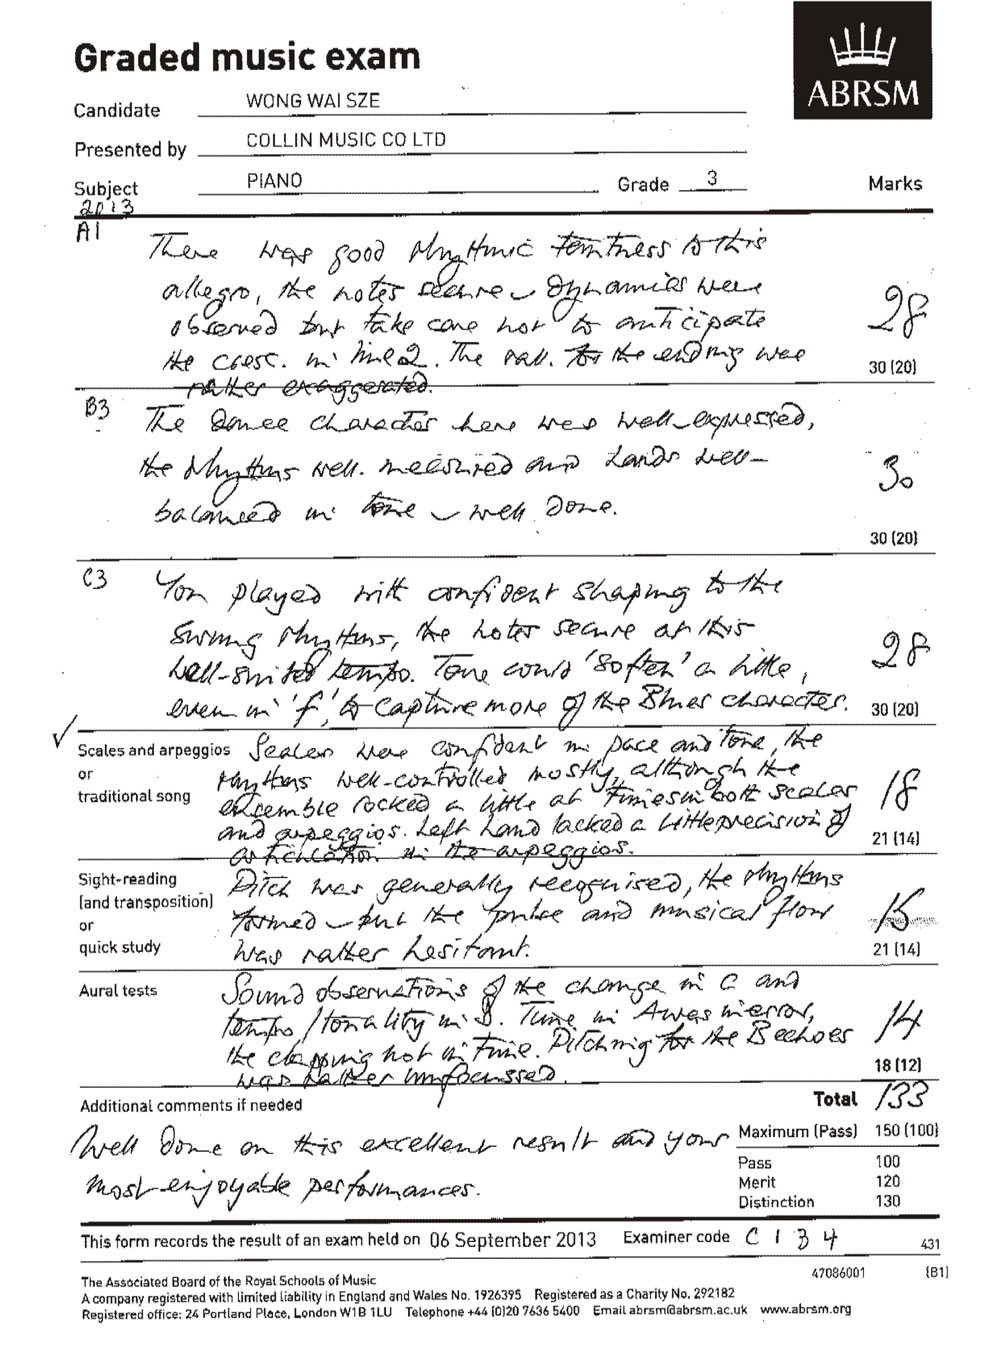 Graded music exam
ABRSM
Candidate WONG WAI SZE
Presented by COLLIN MUSIC CO LTD
Subject PIANO Grade 3 Marks
2013
A1
There was good rhythmic to this
allegro, the notes secure – Dynamics were
observed but take care not to anticipate 28
the cresc. in line 2. The rall. for the ending was 30 (20)
rather exaggerated.
B3
The Dance character here was well-expressed,
the rhythms well-measured and hands well- 30
balanced in tone – well done.
30 (20)
C3 You played with confident shaping to the
swung rhythms, the notes secure at this
well-suited tempo. Tone could 'soften' a little, 28
even in 'f', to capture more of the Blues character. 30 (20)
✓
Scales and arpeggios Scales were confident in pace and tone, the
or rhythms well-controlled mostly, although the
traditional song ensemble rocked a little at times in both scales 18
and arpeggios. Left hand lacked a little precision of 21 (14)
articulation in the arpeggios.
Sight-reading Pitch was generally recognised, the rhythms
(and transposition)
or formed – but the pulse and musical flow 15
quick study was rather hesitant. 21 (14)
Aural tests Sound observations of the change in C and
tempo/tonality in D. Time in A was in error, 14
the clapping not in time. Pitching for the B echoes
was rather unfocussed. 18 (12)
Additional comments if needed Total 133
Well done on this excellent result and your Maximum (Pass) 150 (100)
most enjoyable performances. Pass 100
Merit 120
Distinction 130
This form records the result of an exam held on 06 September 2013 Examiner code C 1 3 4 431
47086001 (B1)
The Associated Board of the Royal Schools of Music
A company registered with limited liability in England and Wales No. 1926395 Registered as a Charity No. 292182
Registered office: 24 Portland Place, London W1B 1LU Telephone +44 (0)20 7636 5400 Email abrsm@abrsm.ac.uk www.abrsm.org